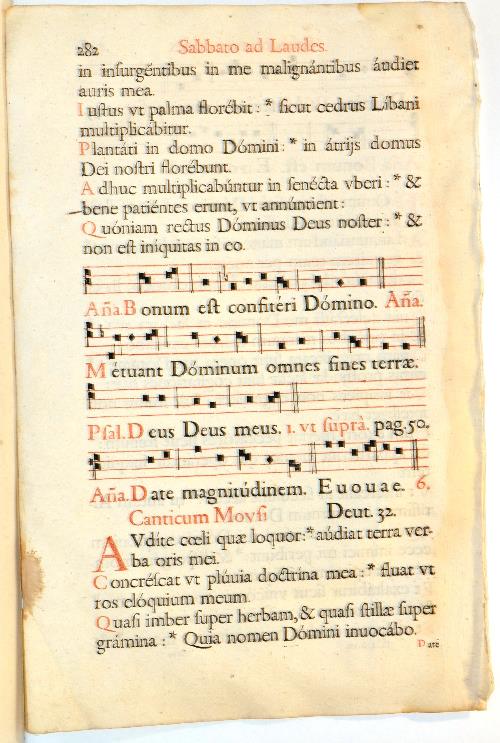 282 Sabbato ad Laudes.
in insurgéntibus in me malignántibus áudiet
auris mea.
Iustus vt palma florébit : * sicut cedrus Líbani
multiplicábitur.
Plantáti in domo Dómini : * in átrijs domus
Dei nostri florébunt.
Adhuc multiplicabúntur in senécta vberi : * &
bene patiéntes erunt, vt annúntient :
Quóniam rectus Dóminus Deus noster : * &
non est iníquitas in eo.
Aña. Bonum est confitéri Dómino. Aña.
Métuant Dóminum omnes fines terræ.
Psal. Deus Deus meus. 1. vt suprà. pag. 50.
Aña. Date magnitúdinem. Euouae. 6.
Canticum Moysi Deut. 32.
AVdíte cœli quæ loquor : * áudiat terra ver-
ba oris mei.
Concréscat vt plúuia doctrína mea : * fluat vt
ros elóquium meum.
Quasi imber super herbam, & quasi stillæ super
grámina : * Quia nomen Dómini inuocábo.
Date